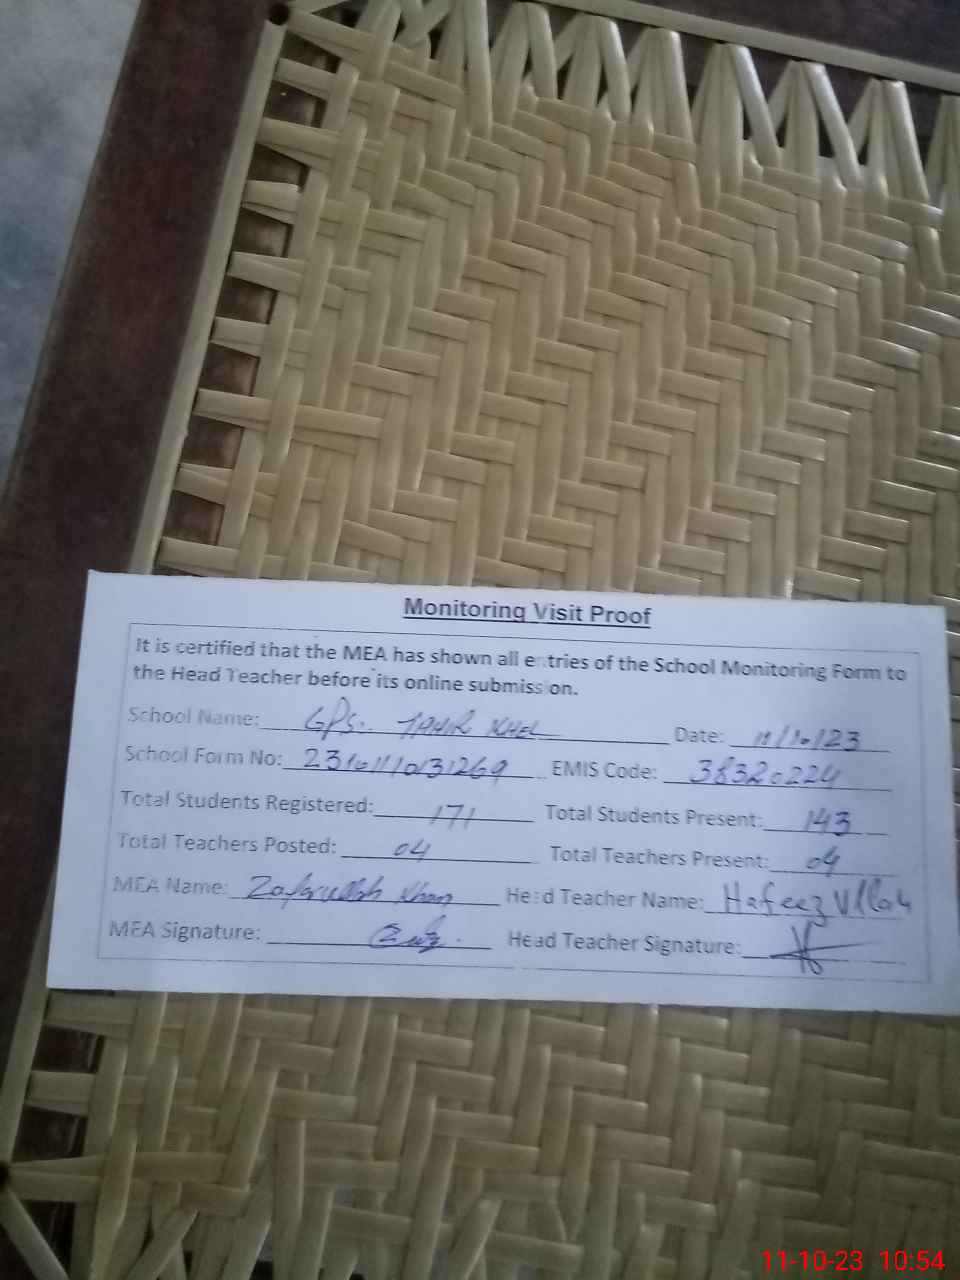 Monitoring Visit Proof
It is certified that the MEA has shown all entries of the School Monitoring Form to
the Head Teacher before its online submission.
School Name: GPS. TAHIR KHEL Date: 11/10/23
School Form No: 23101110131269 EMIS Code: 38320224
Total Students Registered: 171 Total Students Present: 143
Total Teachers Posted: 04 Total Teachers Present: 04
MEA Name: Zafarullah Khan Head Teacher Name: Hafeez Ullah
MEA Signature: Head Teacher Signature:
11-10-23 10:54